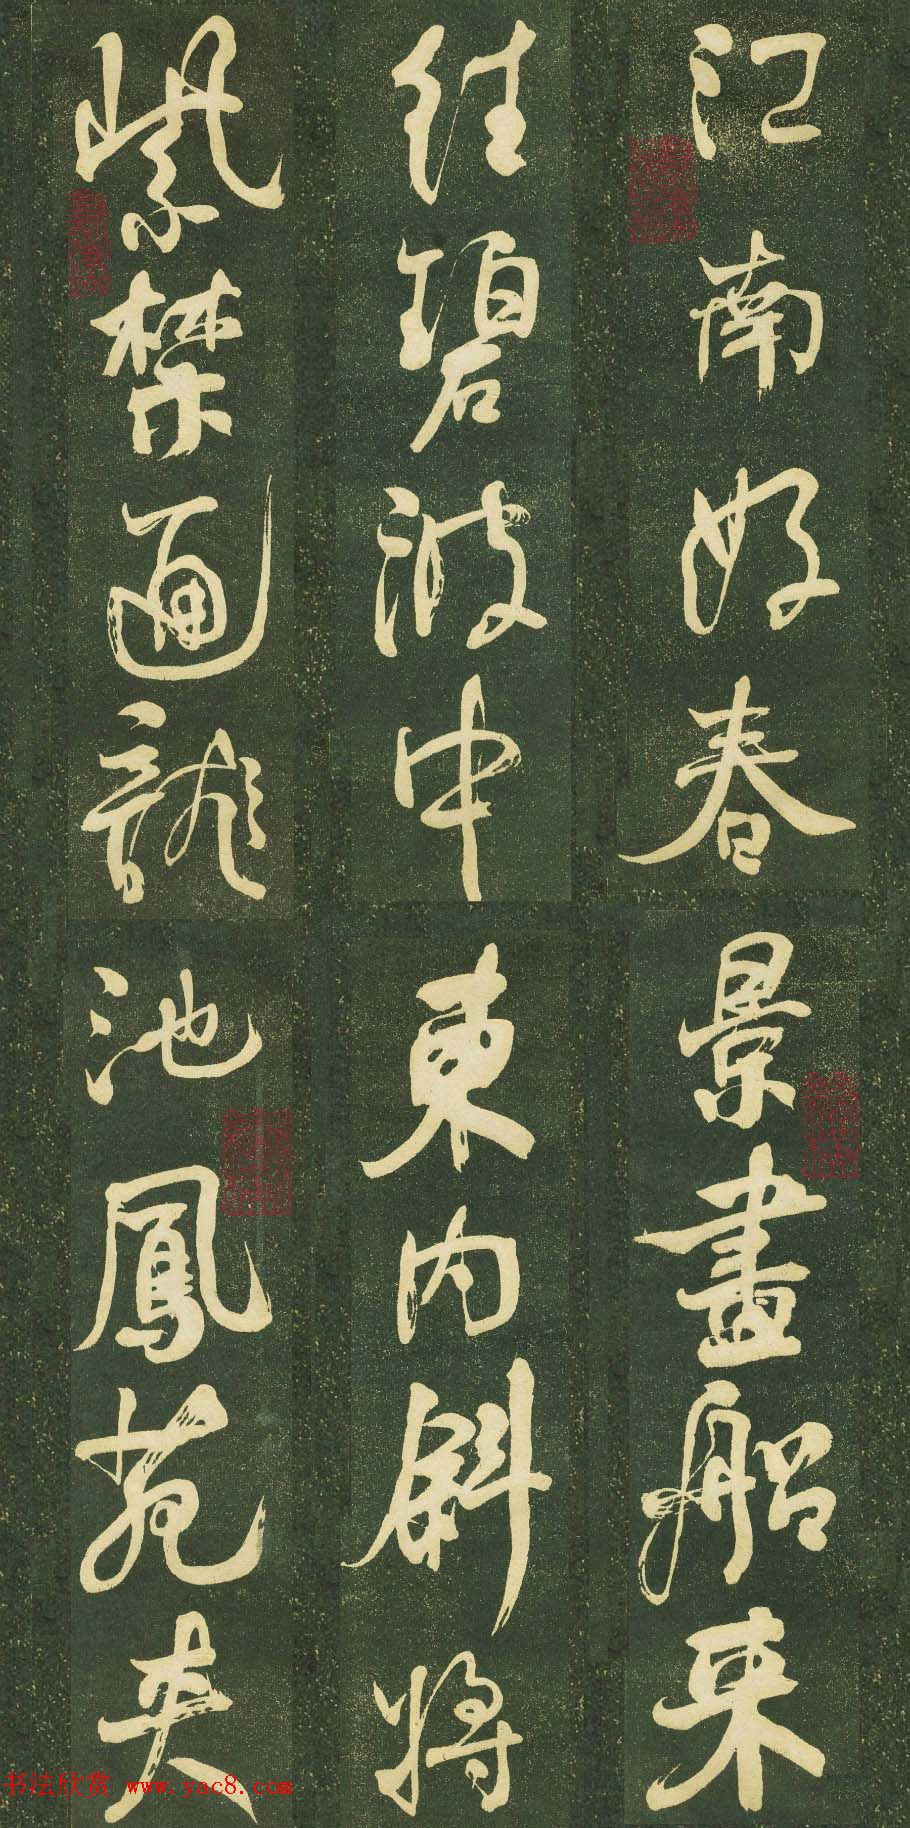 江南好春景畫船来
往碧波中東内斜将
紫禁通龍池鳳苑夾
书法欣赏 www.yac8.com